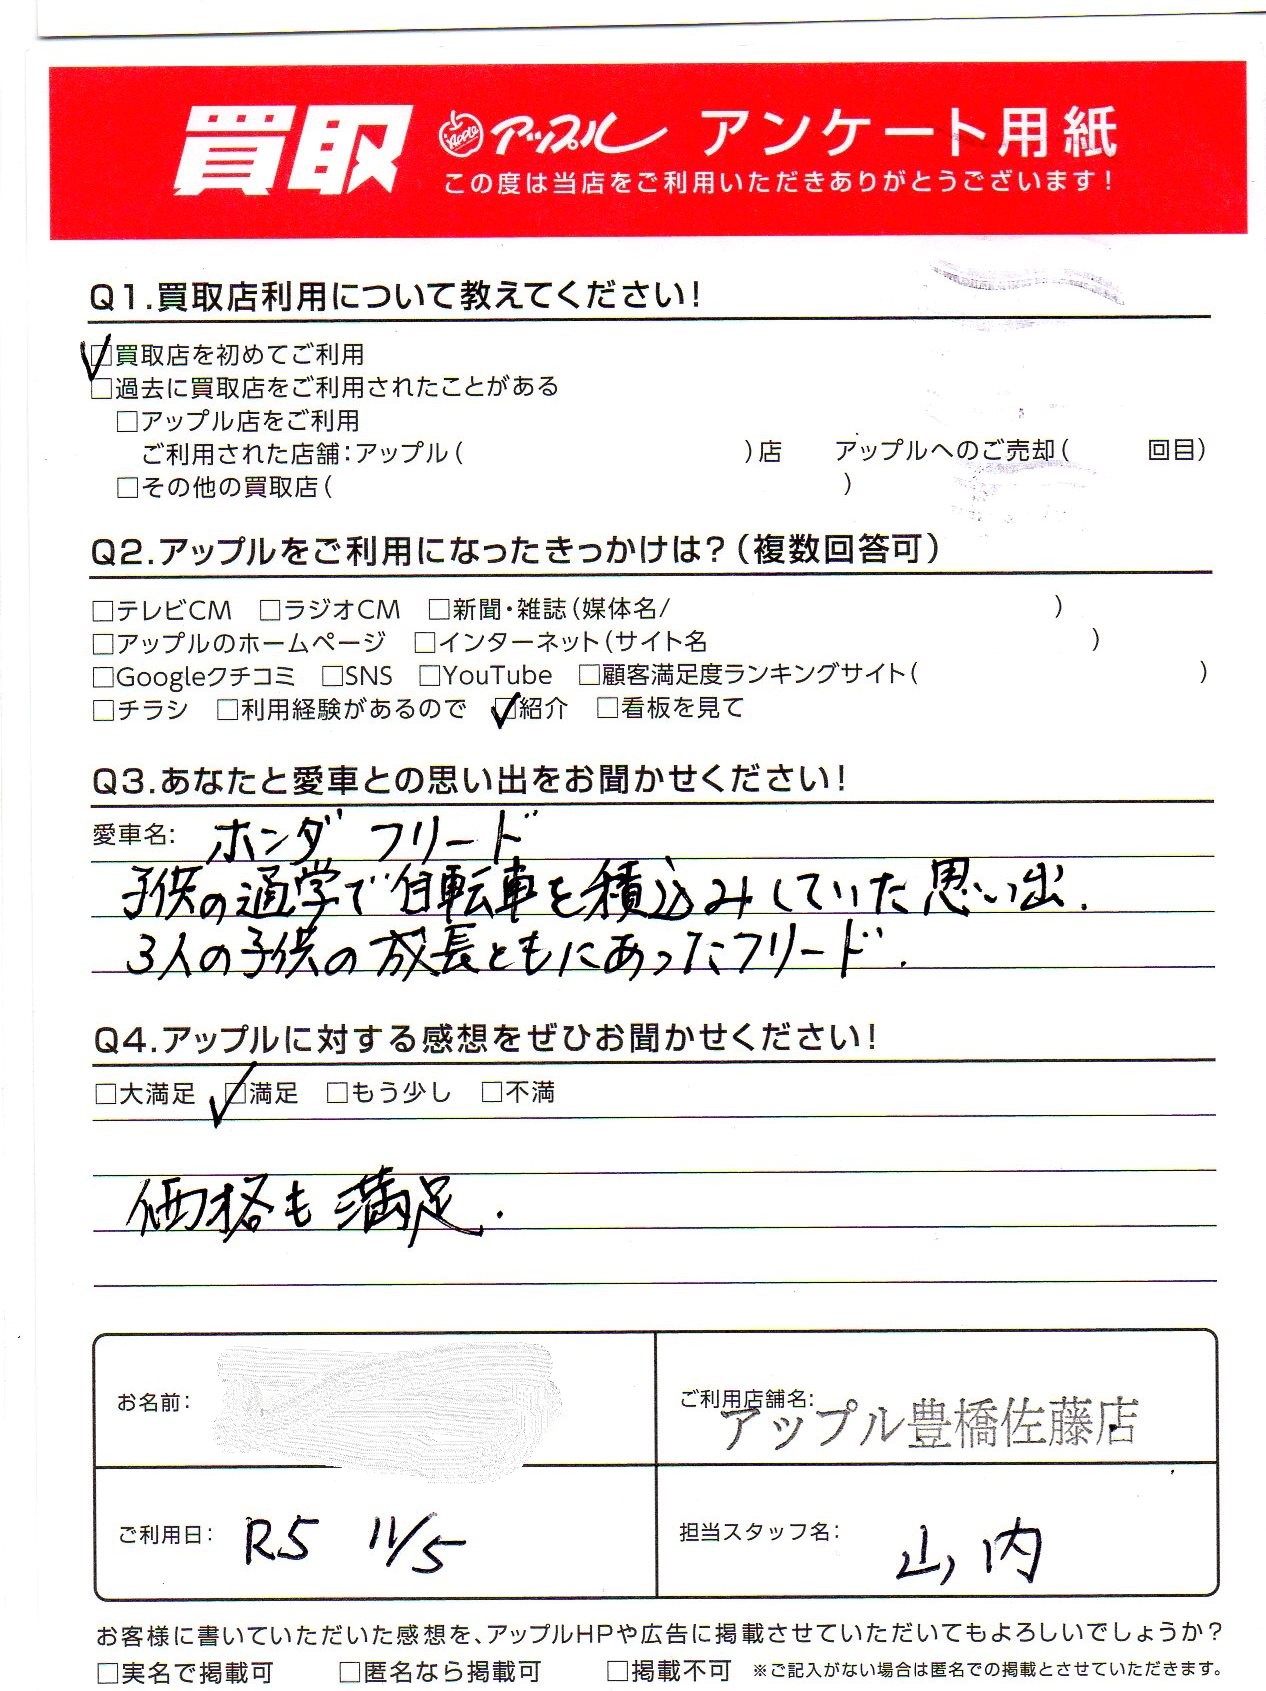 買取 Apple アップル アンケート用紙
この度は当店をご利用いただきありがとうございます!
Q1.買取店利用について教えてください!
☑買取店を初めてご利用
□過去に買取店をご利用されたことがある
□アップル店をご利用
ご利用された店舗:アップル( )店 アップルへのご売却( 回目)
□その他の買取店( )
Q2.アップルをご利用になったきっかけは?(複数回答可)
□テレビCM □ラジオCM □新聞・雑誌(媒体名/ )
□アップルのホームページ □インターネット(サイト名 )
□Googleクチコミ □SNS □YouTube □顧客満足度ランキングサイト( )
□チラシ □利用経験があるので ☑紹介 □看板を見て
Q3.あなたと愛車との思い出をお聞かせください!
愛車名: ホンダ フリード
子供の通学で自転車を積込みしていた思い出.
3人の子供の成長ともにあったフリード.
Q4.アップルに対する感想をぜひお聞かせください!
□大満足 ☑満足 □もう少し □不満
価格も満足.
お名前:
ご利用店舗名: アップル豊橋佐藤店
ご利用日: R5 11/5
担当スタッフ名: 山内
お客様に書いていただいた感想を、アップルHPや広告に掲載させていただいてもよろしいでしょうか?
□実名で掲載可 □匿名なら掲載可 □掲載不可 ※ご記入がない場合は匿名での掲載とさせていただきます。